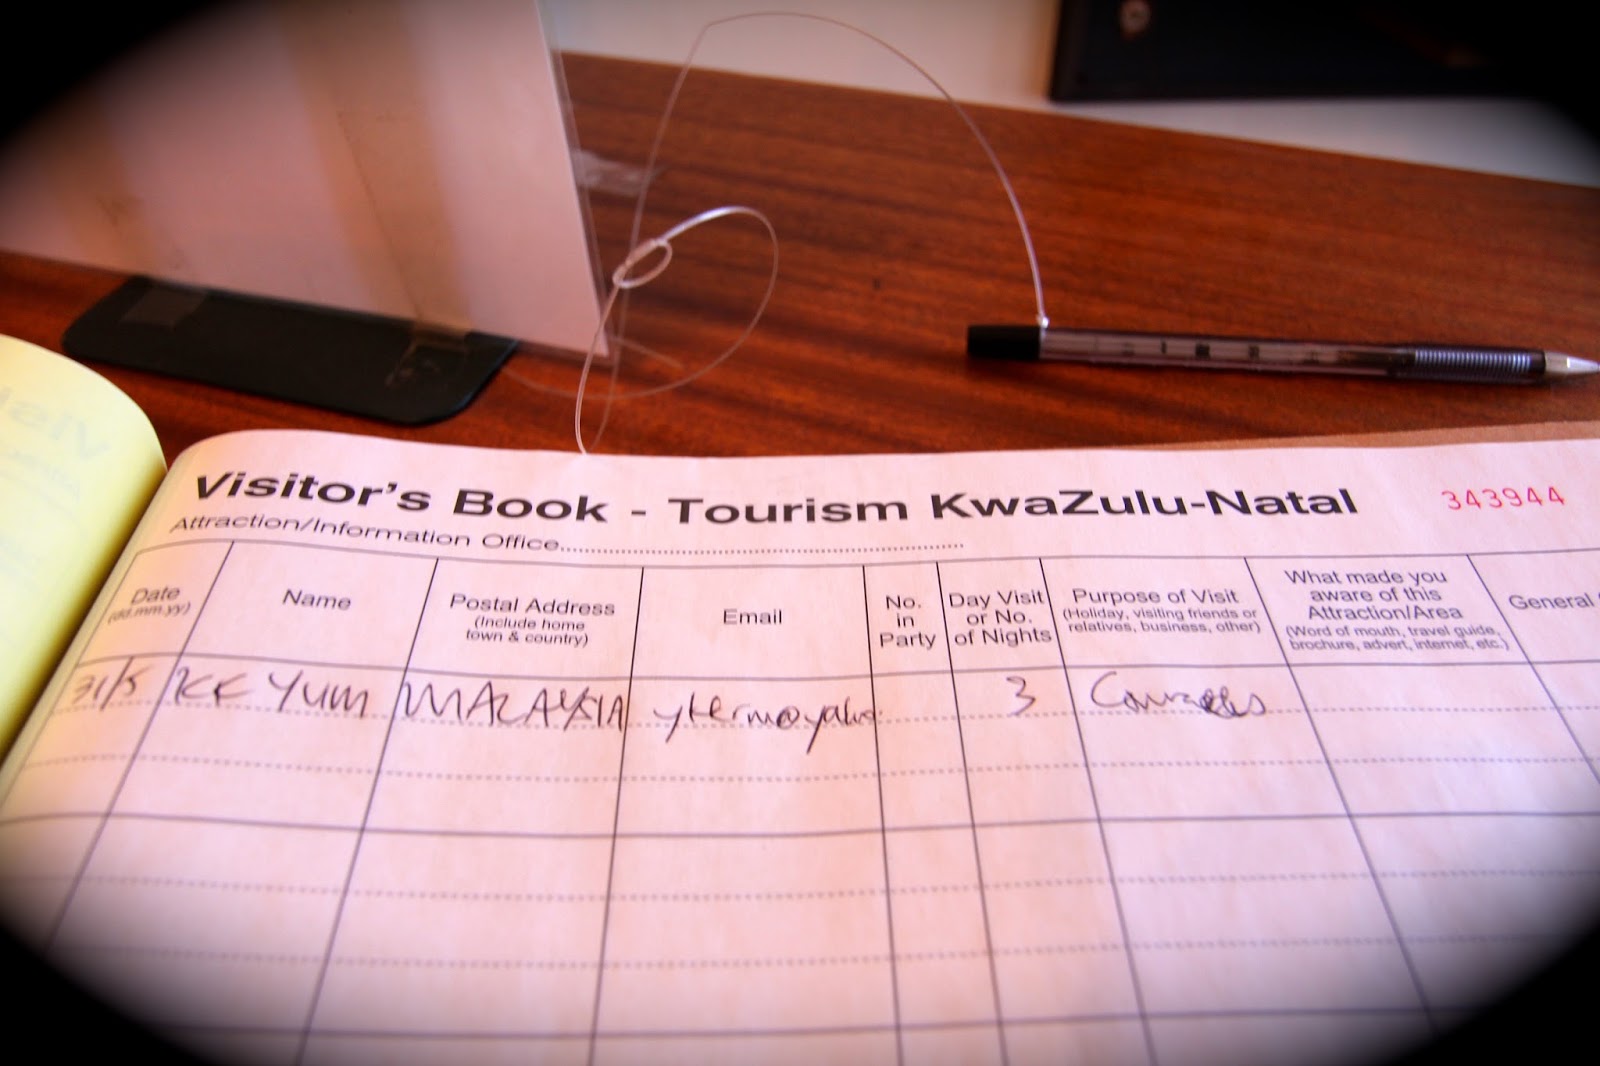 Visitor's Book - Tourism KwaZulu-Natal 343944
Attraction/Information Office
Date
(dd.mm.yy)
Name
Postal Address
(Include home
town & country)
Email
No.
in
Party
Day Visit
or No.
of Nights
Purpose of Visit
(Holiday, visiting friends or
relatives, business, other)
What made you
aware of this
Attraction/Area
(Word of mouth, travel guide,
brochure, advert, internet, etc.)
General
31/5 KK YUM MALAYSIA 3